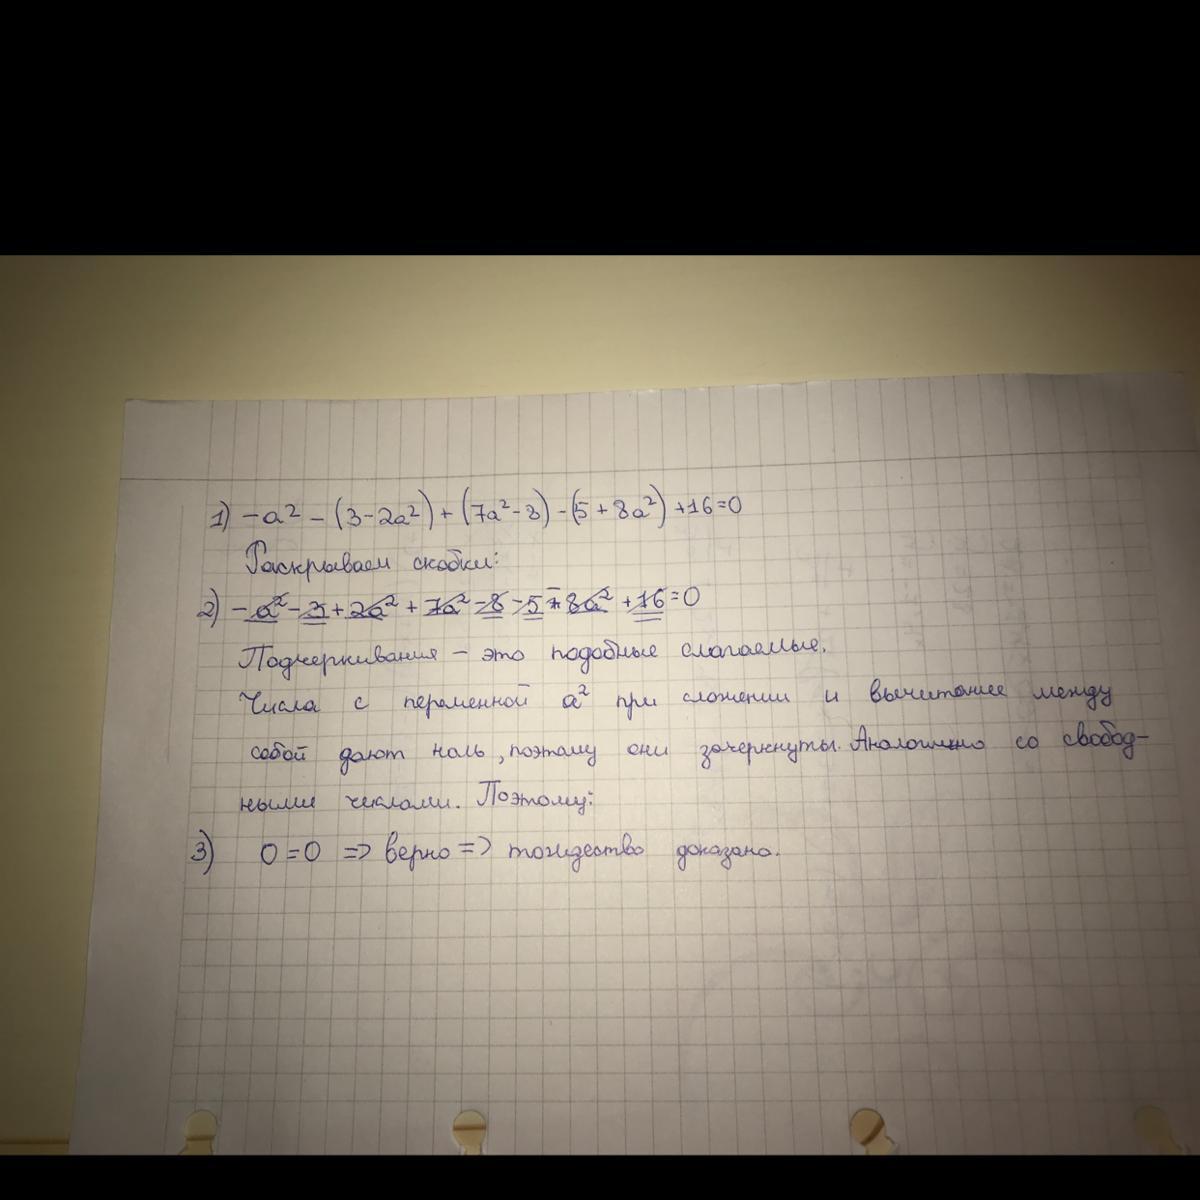 1) -a² - (3-2a²) + (7a²-8) - (5+8a²) +16=0
Раскрываем скобки:
2) - a² - 3 + 2a² + 7a² - 8 - 5 - 8a² + 16 = 0
Подчеркивания - это подобные слагаемые.
Числа с переменной a² при сложении и вычитание между
собой дают ноль, поэтому они зачеркнуты. Аналогично со свобод-
ными числами. Поэтому:
3) 0=0 => верно => тождество доказано.